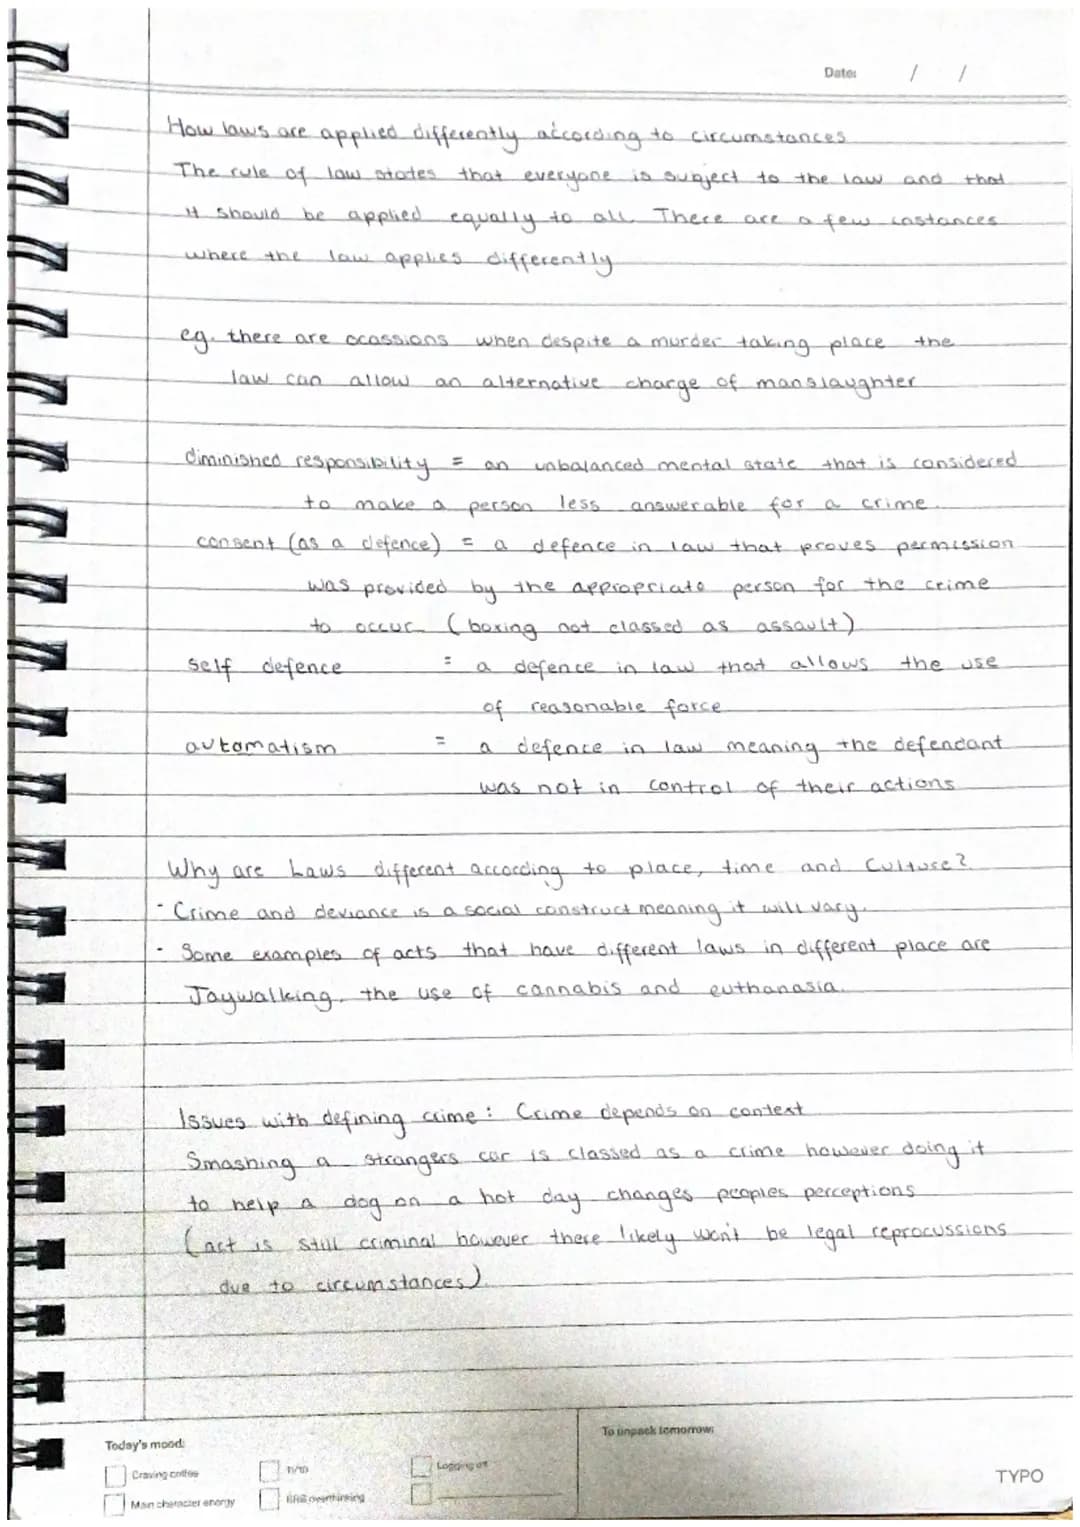 Date: / /
How laws are applied differently according to circumstances
The rule of law states that everyone is subject to the law and that
it should be applied equally to all. There are a few instances
where the law applies differently
eg. there are ocassions when despite a murder taking place the
law can allow an alternative charge of manslaughter
diminished responsibility = an unbalanced mental state that is considered
to make a person less answerable for a crime.
consent (as a defence) = a defence in law that proves permission
was provided by the appropriate person for the crime
to occur (boxing not classed as assault)
self defence = a defence in law that allows the use
of reasonable force
automatism = a defence in law meaning the defendant
was not in control of their actions
Why are Laws different according to place, time and Culture?
- Crime and deviance is a social construct meaning it will vary.
- Some examples of acts that have different laws in different place are
Jaywalking, the use of cannabis and euthanasia.
Issues with defining crime: Crime depends on context
Smashing a strangers car is classed as a crime however doing it
to help a dog on a hot day changes peoples perceptions
(act is still criminal however there likely won't be legal reprocussions
due to circumstances)
Today's mood:
Craving coffee 11/10 Logging off
Main character energy BRB overthinking
To unpack tomorrow:
TYPO